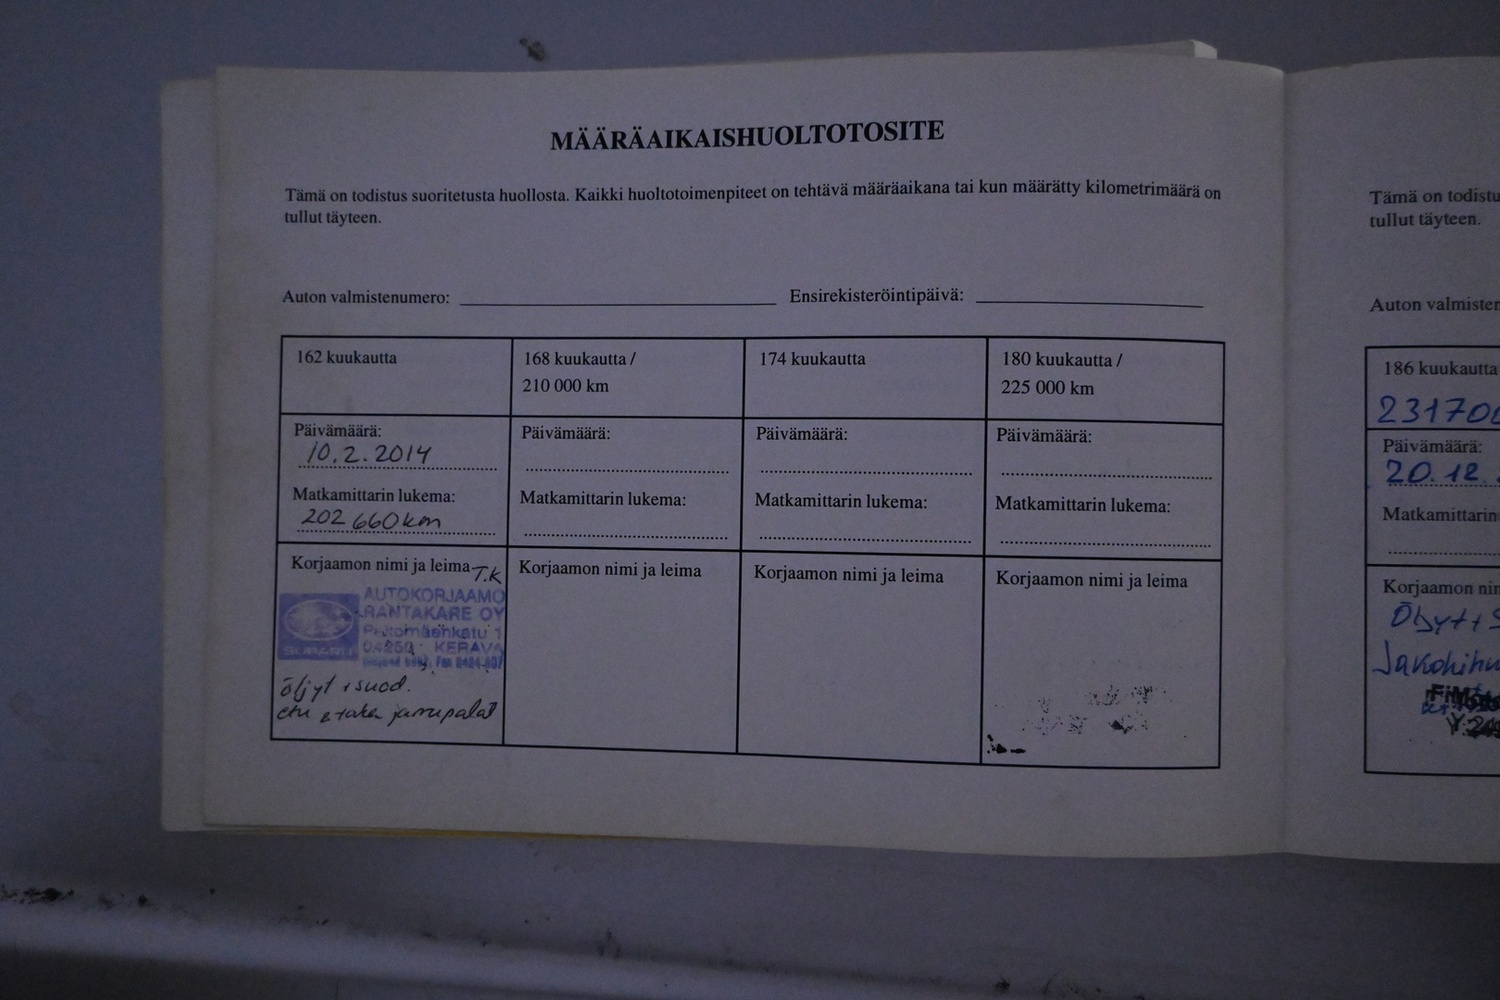 MÄÄRÄAIKAISHUOLTOTOSITE
Tämä on todistus suoritetusta huollosta. Kaikki huoltotoimenpiteet on tehtävä määräaikana tai kun määrätty kilometrimäärä on
tullut täyteen.
Auton valmistenumero:
Ensirekisteröintipäivä:
162 kuukautta
Päivämäärä:
10.2.2014
Matkamittarin lukema:
202 660 km
Korjaamon nimi ja leima
T.K
SUBARU
AUTOKORJAAMO
RANTAKARE OY
04250 KERAVA
öljyt + suod.
etu & taka jarrupalat
168 kuukautta /
210 000 km
Päivämäärä:
Matkamittarin lukema:
Korjaamon nimi ja leima
174 kuukautta
Päivämäärä:
Matkamittarin lukema:
Korjaamon nimi ja leima
180 kuukautta /
225 000 km
Päivämäärä:
Matkamittarin lukema:
Korjaamon nimi ja leima
Tämä on todistu
tullut täyteen.
Auton valmisten
186 kuukautta
23170
Päivämäärä:
20.12.
Matkamittarin
Korjaamon nim